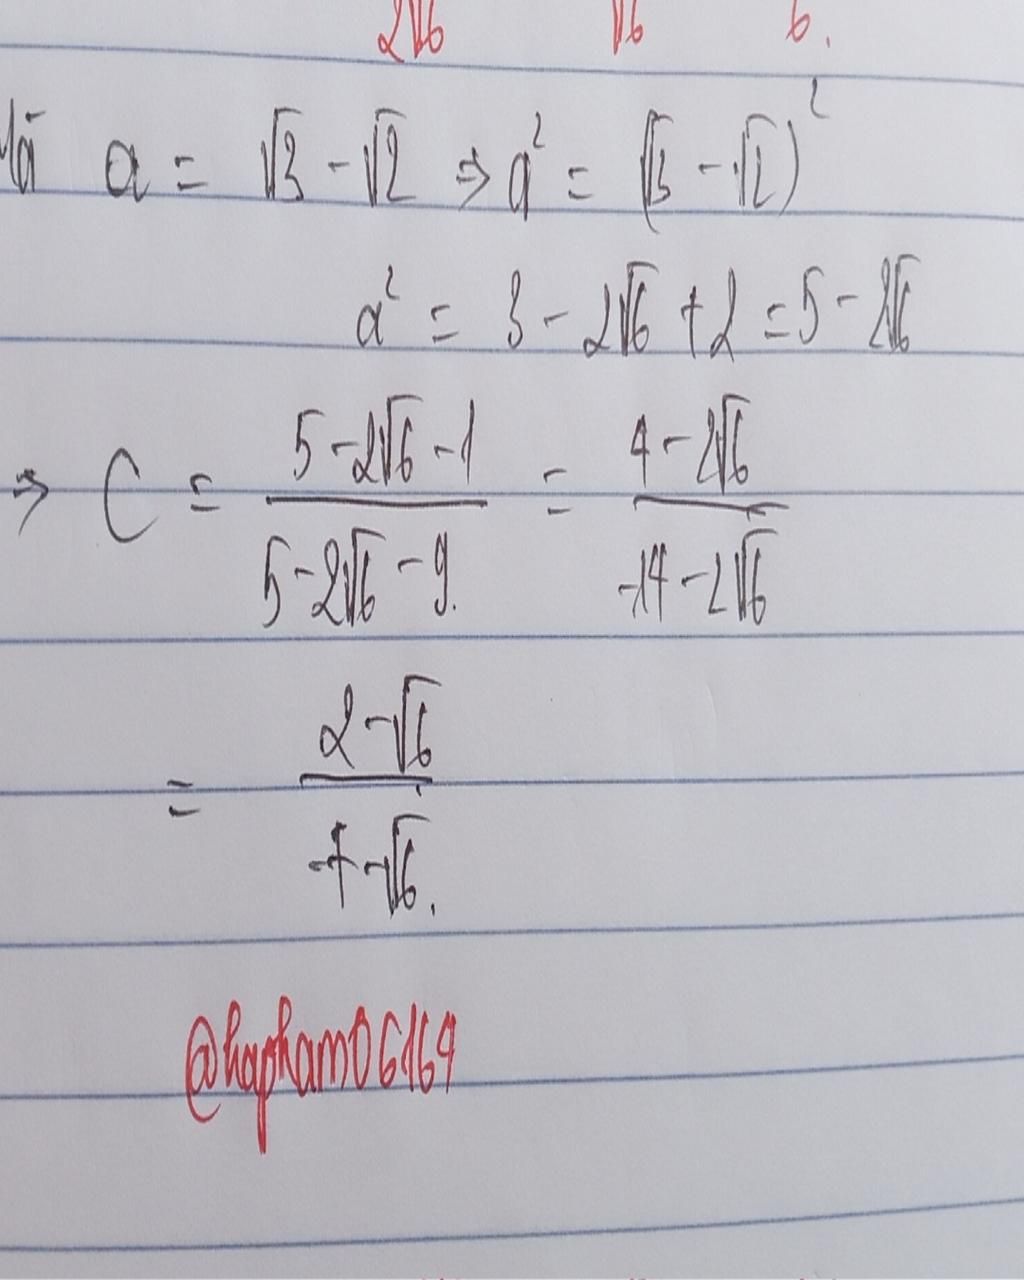 2√6 √6 6.
Mà a = √3 - √2 ⇒ a² = (√3 - √2)²
a² = 3 - 2√6 + 2 = 5 - 2√6
⇒ C = (5 - 2√6 - 1)/(5 - 2√6 - 9.) = (4 - 2√6)/(-14 - 2√6)
= (2 - √6)/(-7 - √6.)
@hapham06169